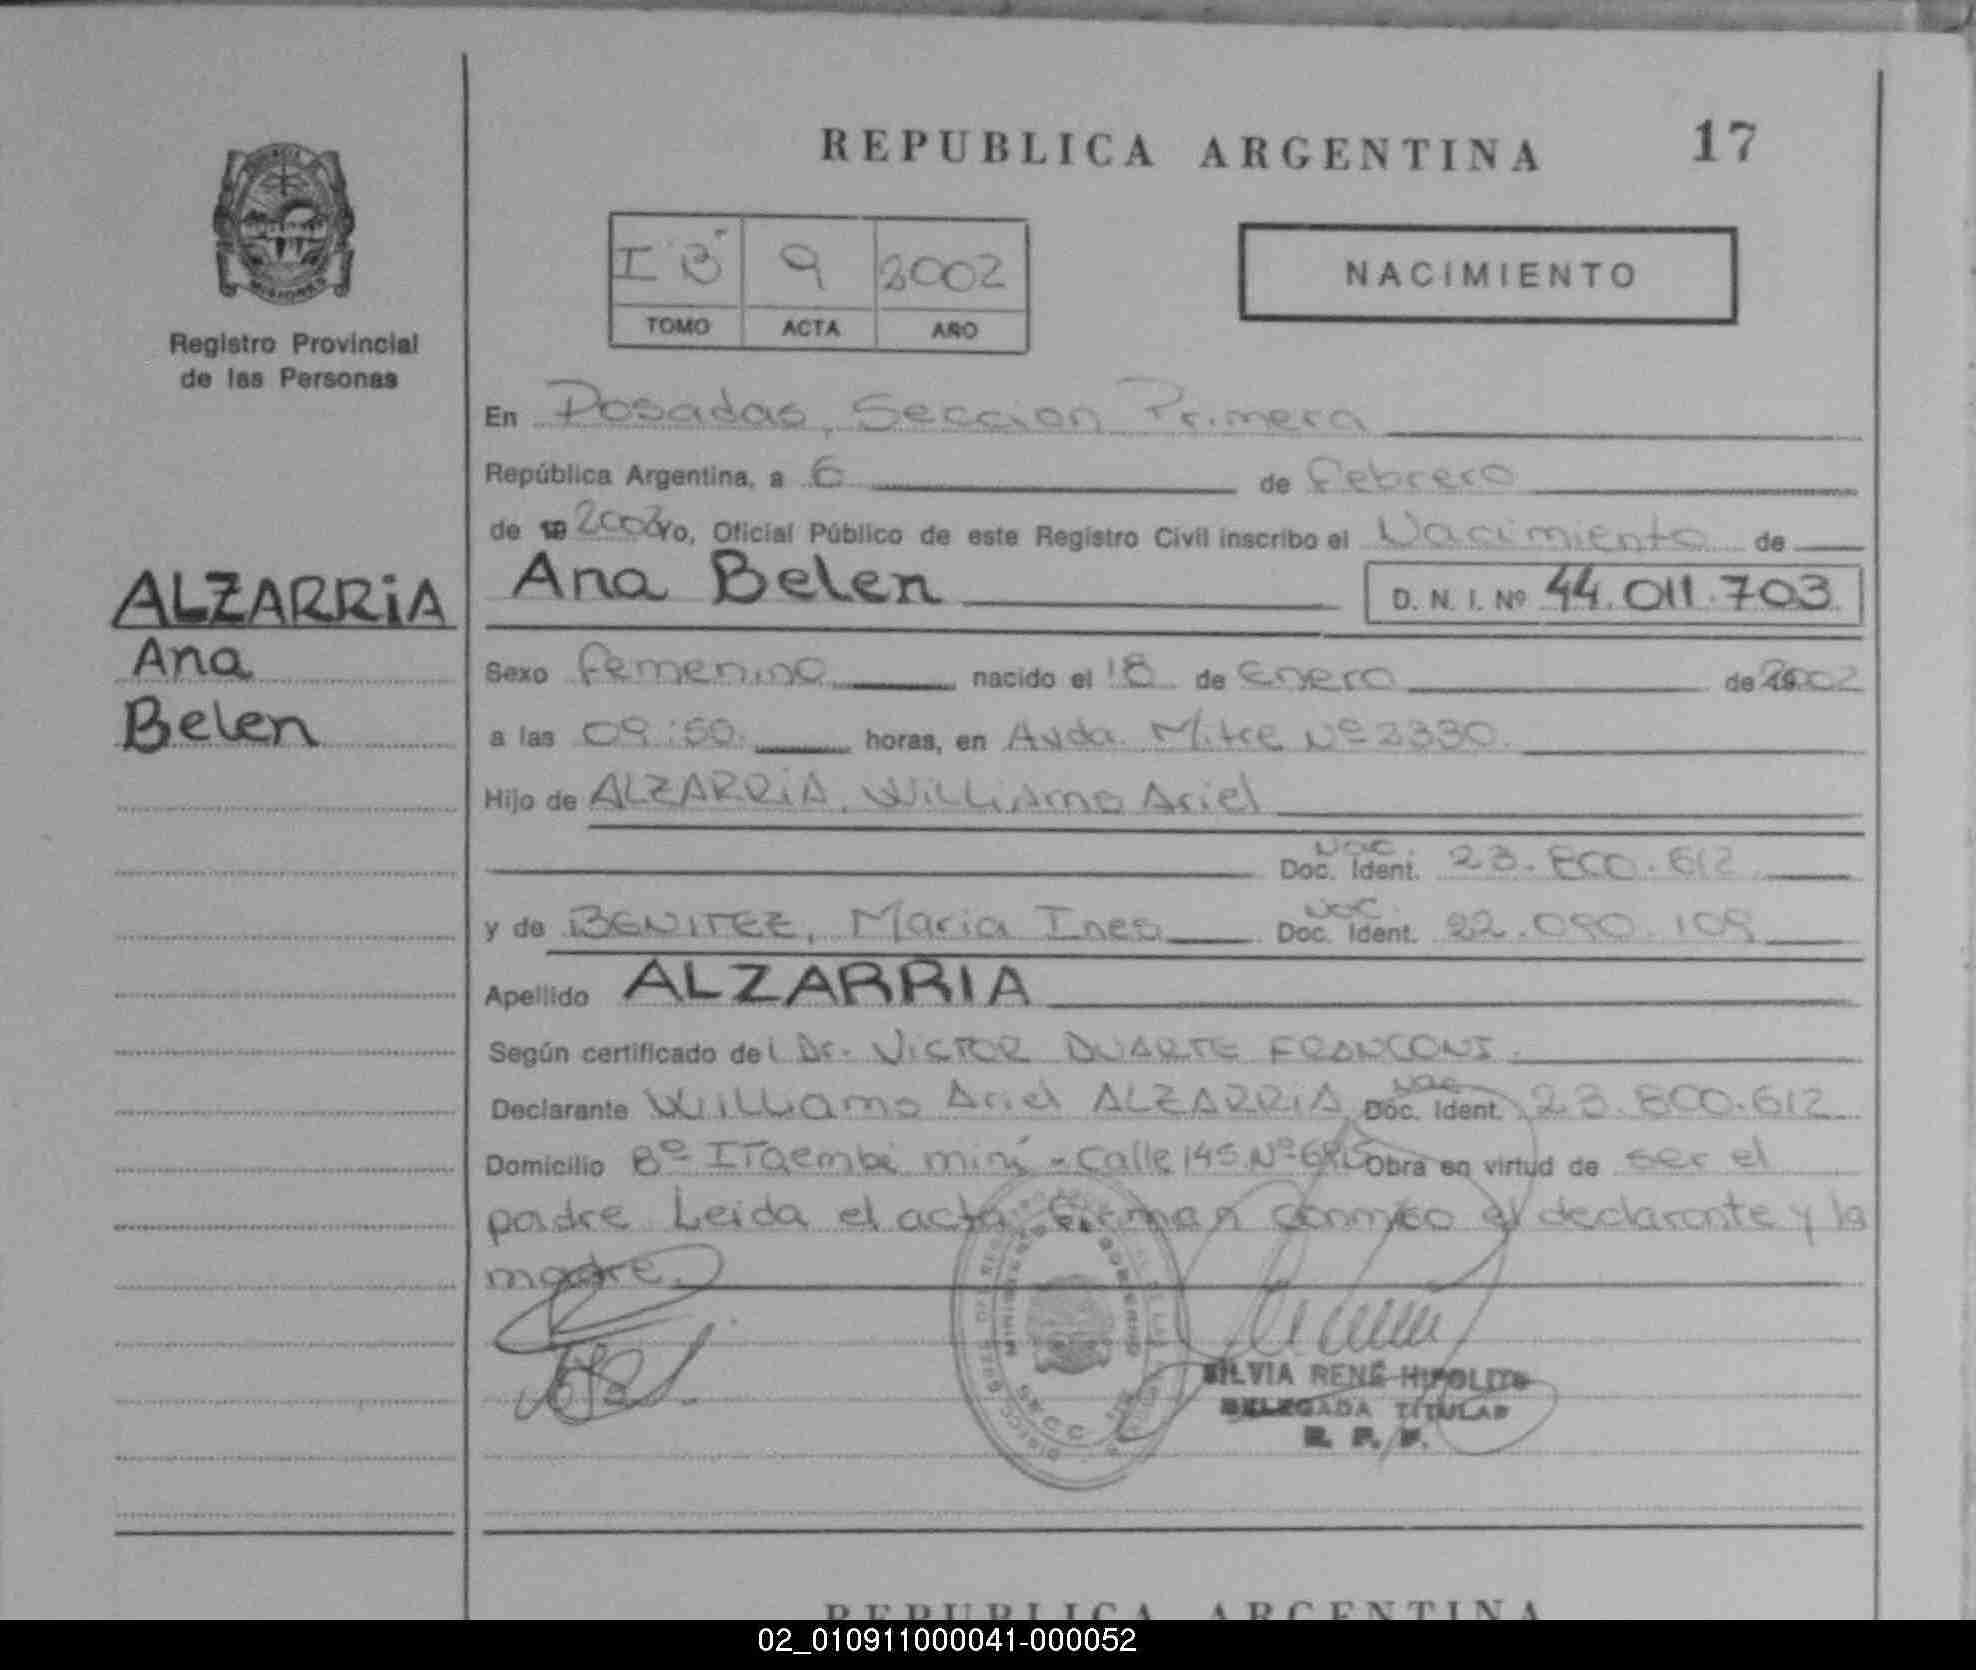 REPUBLICA ARGENTINA 17
I "B" 9 2002
TOMO ACTA AÑO
NACIMIENTO
Registro Provincial
de las Personas
En Posadas, Seccion Primera
República Argentina, a 6 de febrero
de 19 2002 Yo, Oficial Público de este Registro Civil inscribo el Nacimiento de
ALZARRiA
Ana
Belen
Ana Belen D. N. I. Nº 44.011.703
Sexo femenino nacido el 18 de enero de 2002
a las 09:50. horas, en Avda. Mitre Nº 2330.
Hijo de ALZARRiA, Williams Ariel
Nac.
Doc. Ident. 23.800.612
y de BENITEZ, Maria Ines Nac. Doc. Ident. 22.090.109
Apellido ALZARRIA
Según certificado del Dr. VICTOR DUARTE FRANCONI.
Declarante Williams Ariel ALZARRiA Nac. Doc. Ident. 23.800.612
Domicilio Bº ITaembé mini - Calle 145 Nº Obra en virtud de ser el
padre Leida el acta, firman conmigo el declarante y la
madre.
MINISTERIO DE GOBIERNO
SECC.
SILVIA RENÉ HIPOLITO
DELEGADA TITULAR
R. P. P.
REPUBLICA ARGENTINA
02_010911000041-000052